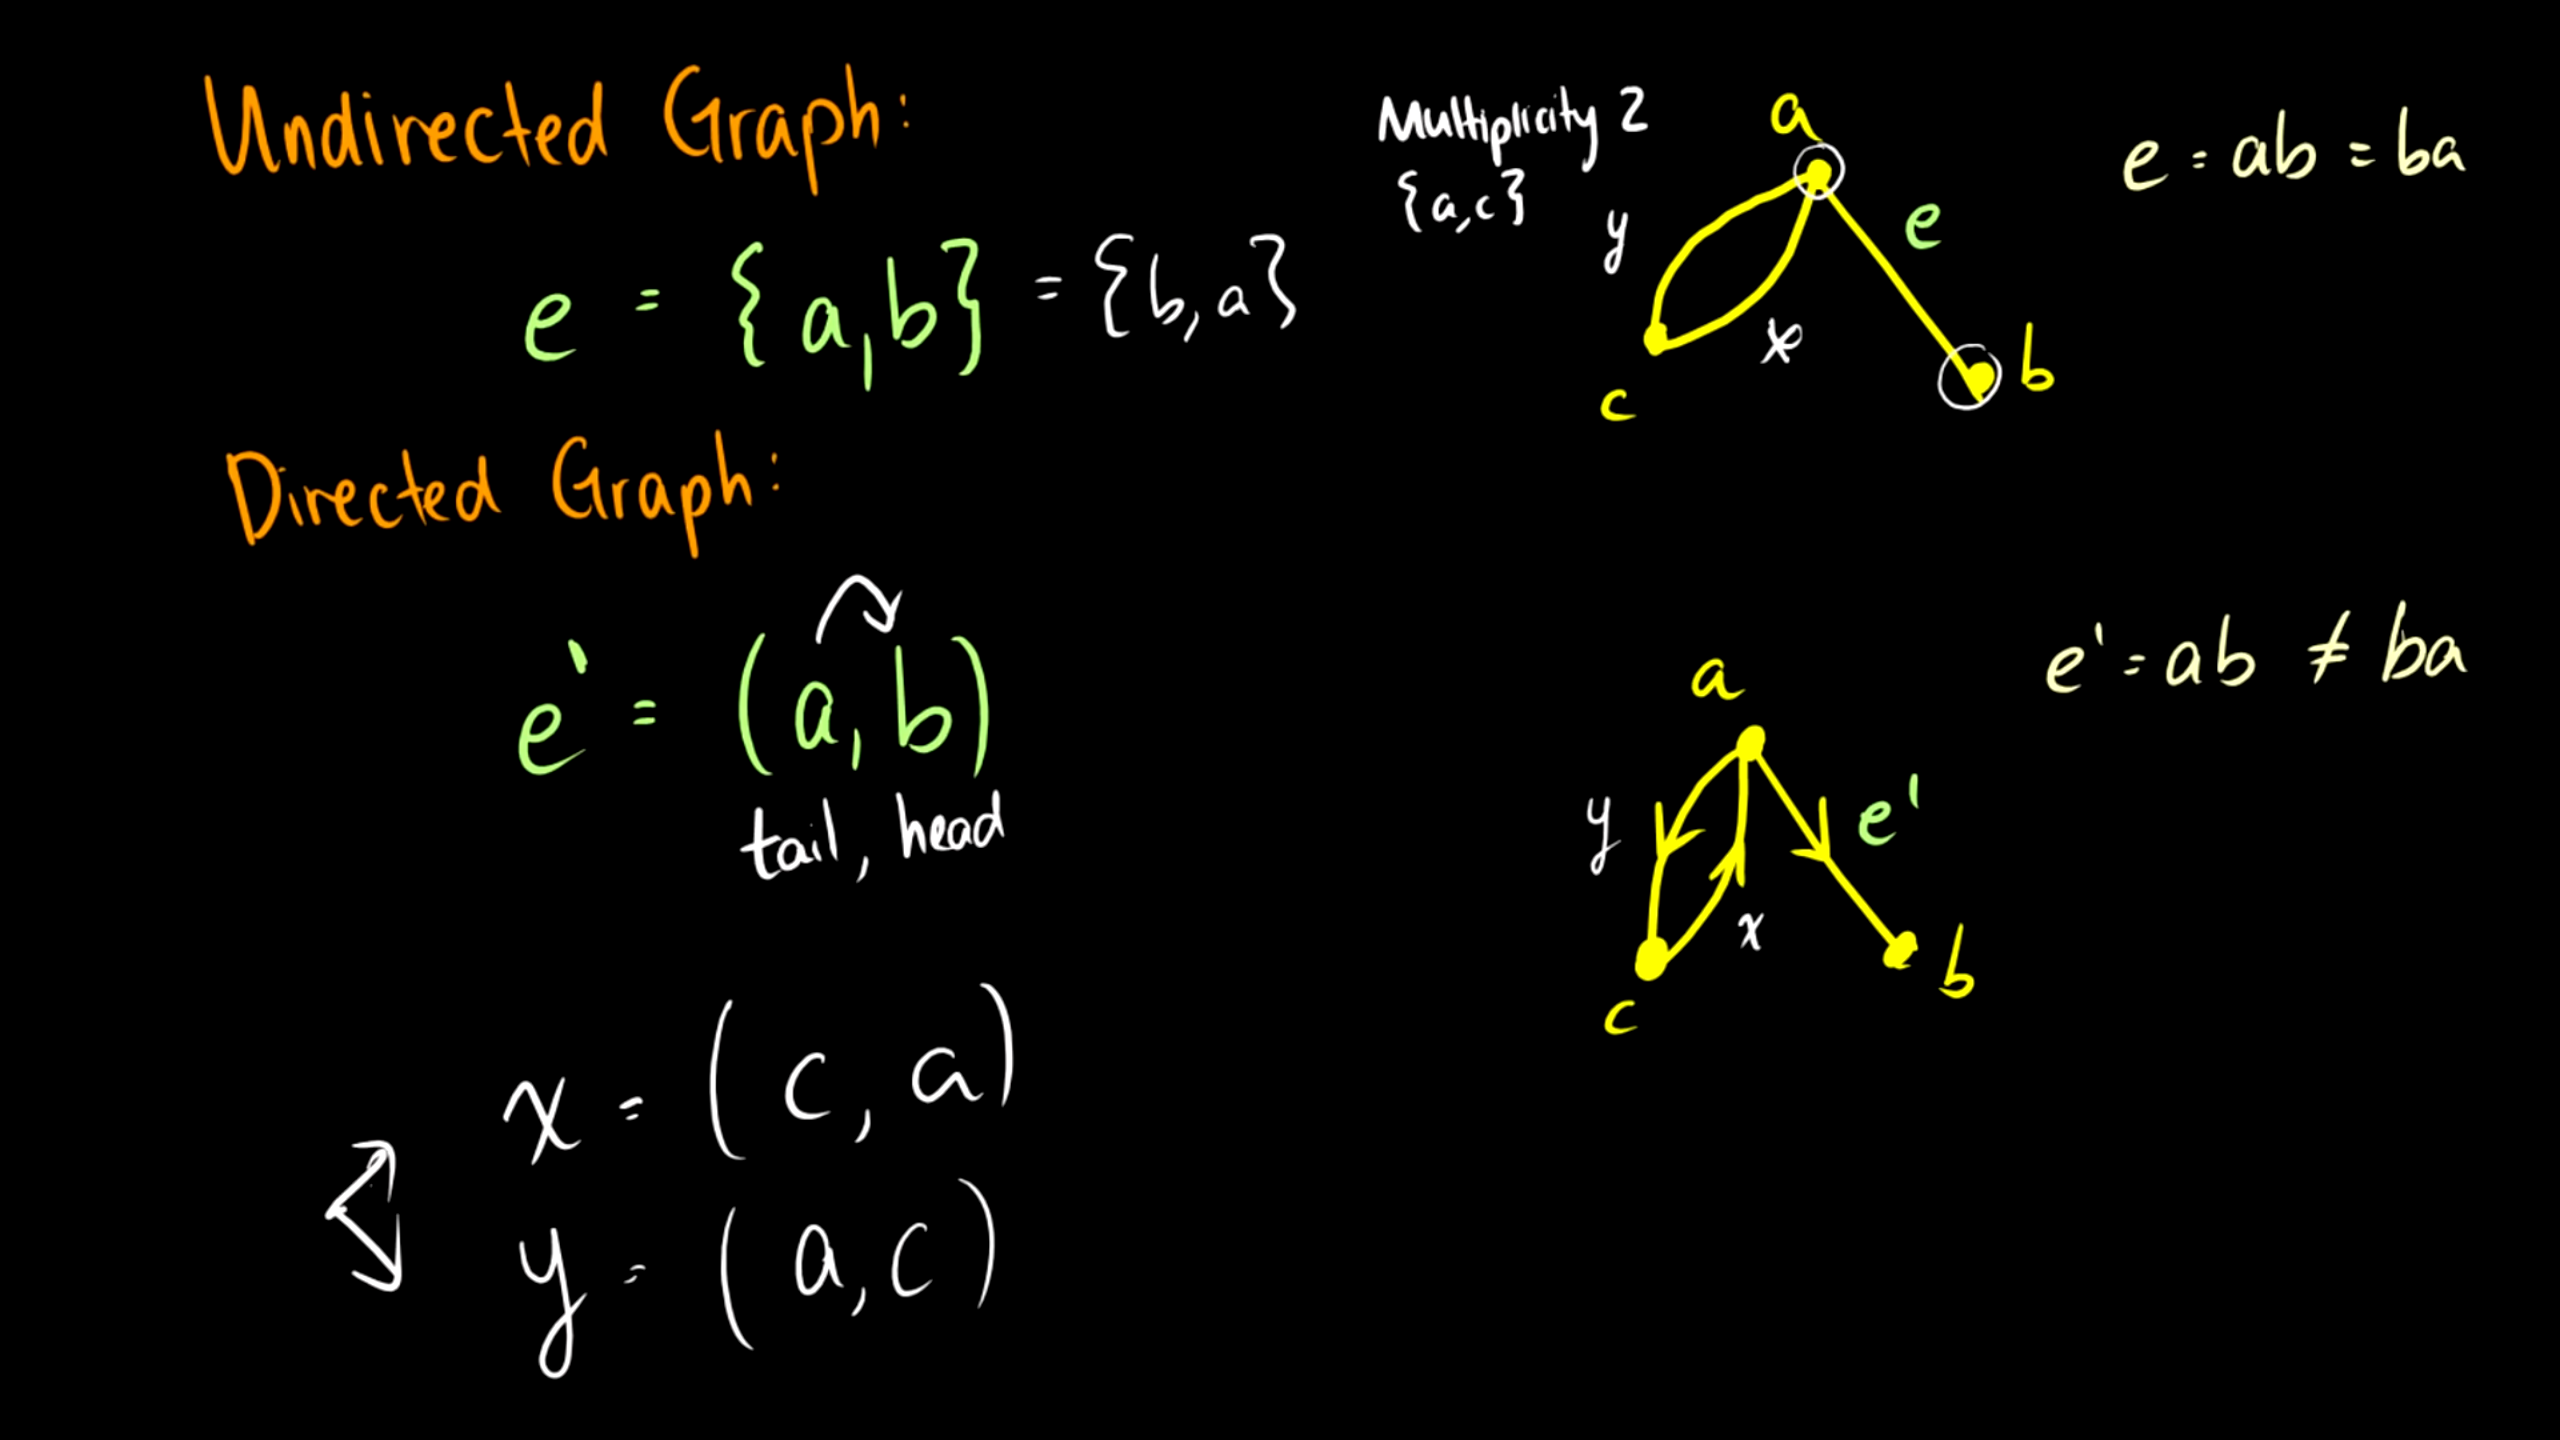 Undirected Graph:
e = {a,b} = {b,a}
Multiplicity 2
{a,c}
a
e = ab = ba
y
e
x
b
c
Directed Graph:
e' = (a,b)
tail, head
a
e' = ab ≠ ba
y
e'
x
b
c
x = (c, a)
y = (a,c)